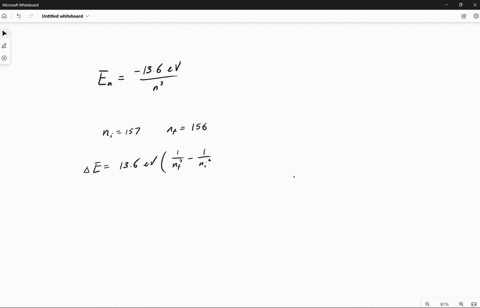 Microsoft Whiteboard
Untitled whiteboard
Eₙ = -13.6 eV / n²
nᵢ = 157 n_f = 156
ΔE = 13.6 eV ( 1/n_f² - 1/nᵢ²
81%